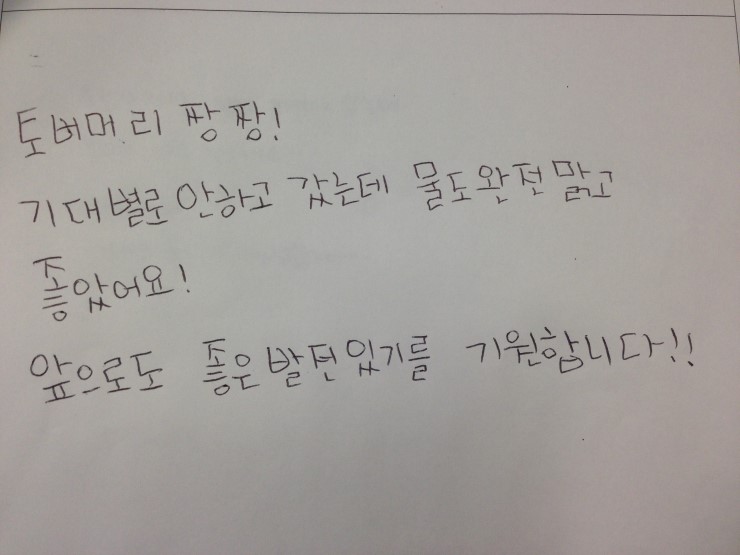 토버머리 짱짱!
기대별로안하고 갔는데 물도완전맑고
좋았어요!
앞으로도 좋은발전있기를 기원합니다!!